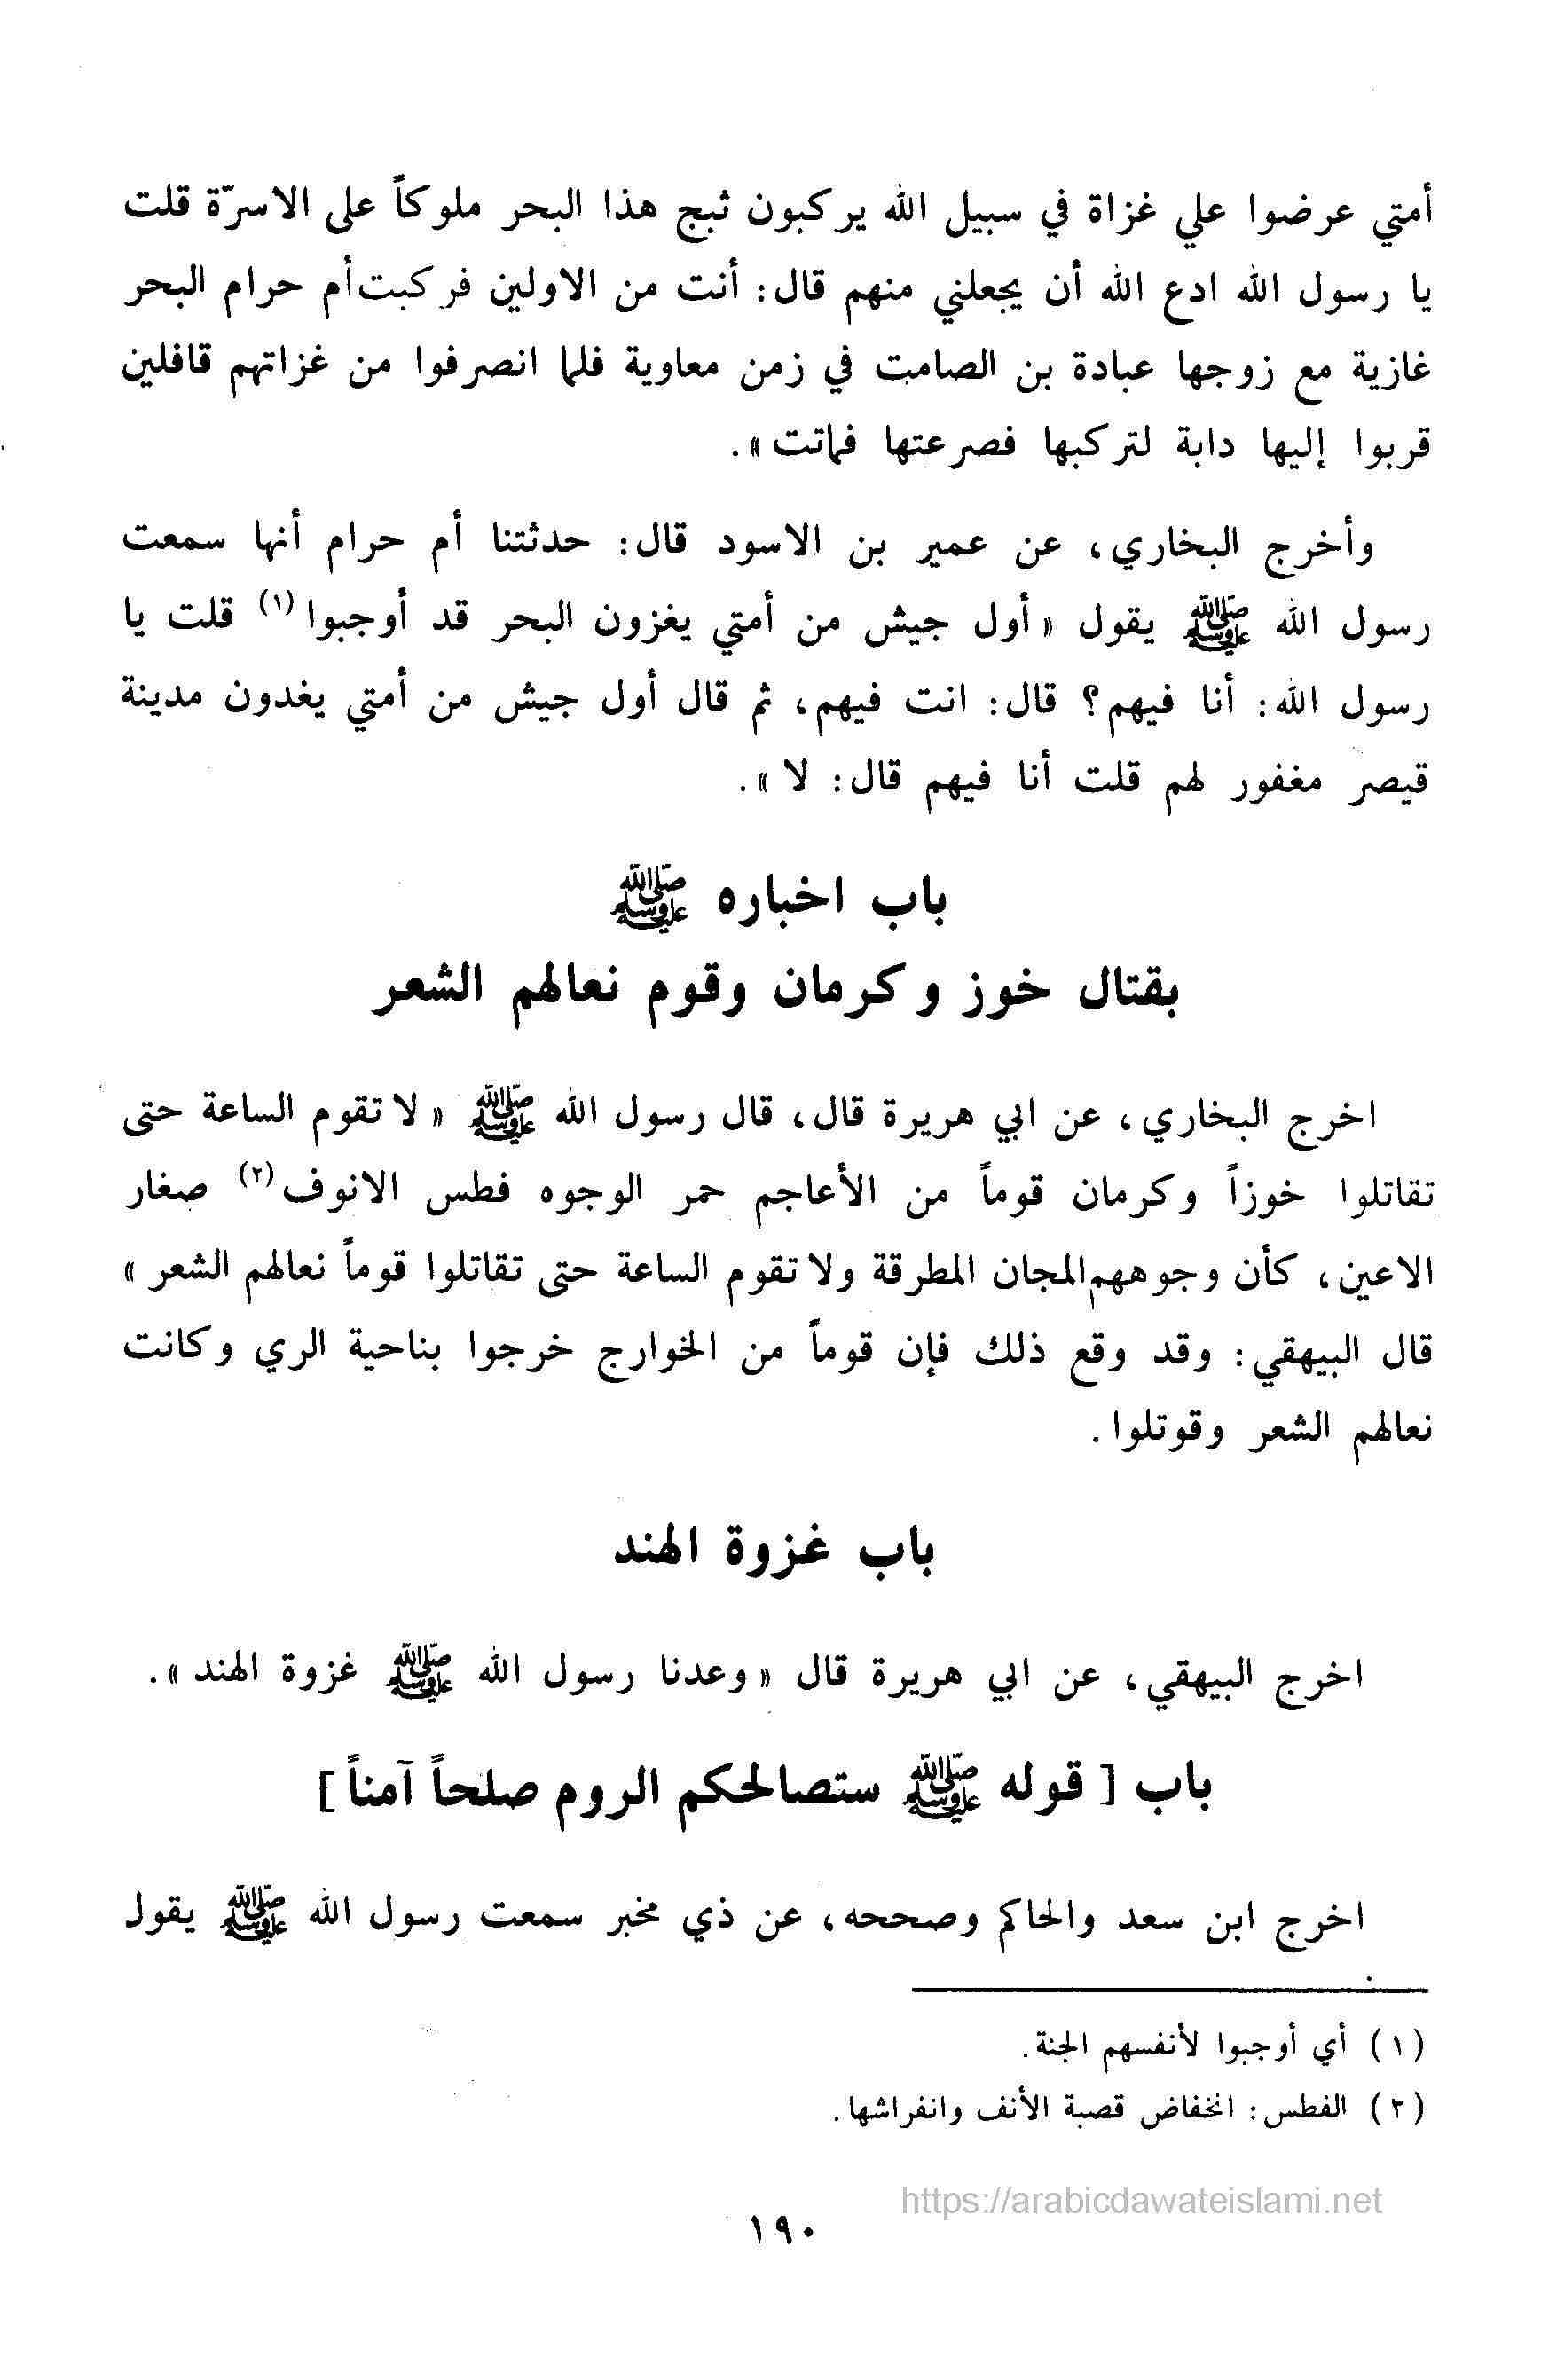 أمتي عرضوا علي غزاة في سبيل الله يركبون ثبج هذا البحر ملوكاً على الاسرّة قلت
يا رسول الله ادع الله أن يجعلني منهم قال: أنت من الاولين فركبت أم حرام البحر
غازية مع زوجها عبادة بن الصامت في زمن معاوية فلما انصرفوا من غزاتهم قافلين
قربوا إليها دابة لتركبها فصرعتها فماتت».
وأخرج البخاري، عن عمير بن الاسود قال: حدثتنا أم حرام أنها سمعت
رسول الله ﷺ يقول «أول جيش من أمتي يغزون البحر قد أوجبوا(١) قلت يا
رسول الله: أنا فيهم؟ قال: انت فيهم، ثم قال أول جيش من أمتي يغدون مدينة
قيصر مغفور لهم قلت أنا فيهم قال: لا».
باب اخباره ﷺ
بقتال خوز وكرمان وقوم نعالهم الشعر
اخرج البخاري، عن ابي هريرة قال، قال رسول الله ﷺ «لا تقوم الساعة حتى
تقاتلوا خوزاً وكرمان قوماً من الأعاجم حمر الوجوه فطس الانوف(٢) صغار
الاعين، كأن وجوههم المجان المطرقة ولا تقوم الساعة حتى تقاتلوا قوماً نعالهم الشعر»
قال البيهقي: وقد وقع ذلك فإن قوماً من الخوارج خرجوا بناحية الري وكانت
نعالهم الشعر وقوتلوا.
باب غزوة الهند
اخرج البيهقي، عن ابي هريرة قال «وعدنا رسول الله ﷺ غزوة الهند».
باب [قوله ﷺ ستصالحكم الروم صلحاً آمناً]
اخرج ابن سعد والحاكم وصححه، عن ذي مخبر سمعت رسول الله ﷺ يقول
(١) أي أوجبوا لأنفسهم الجنة.
(٢) الفطس: انخفاض قصبة الأنف وانفراشها.
https://arabicdawateislami.net
١٩٠